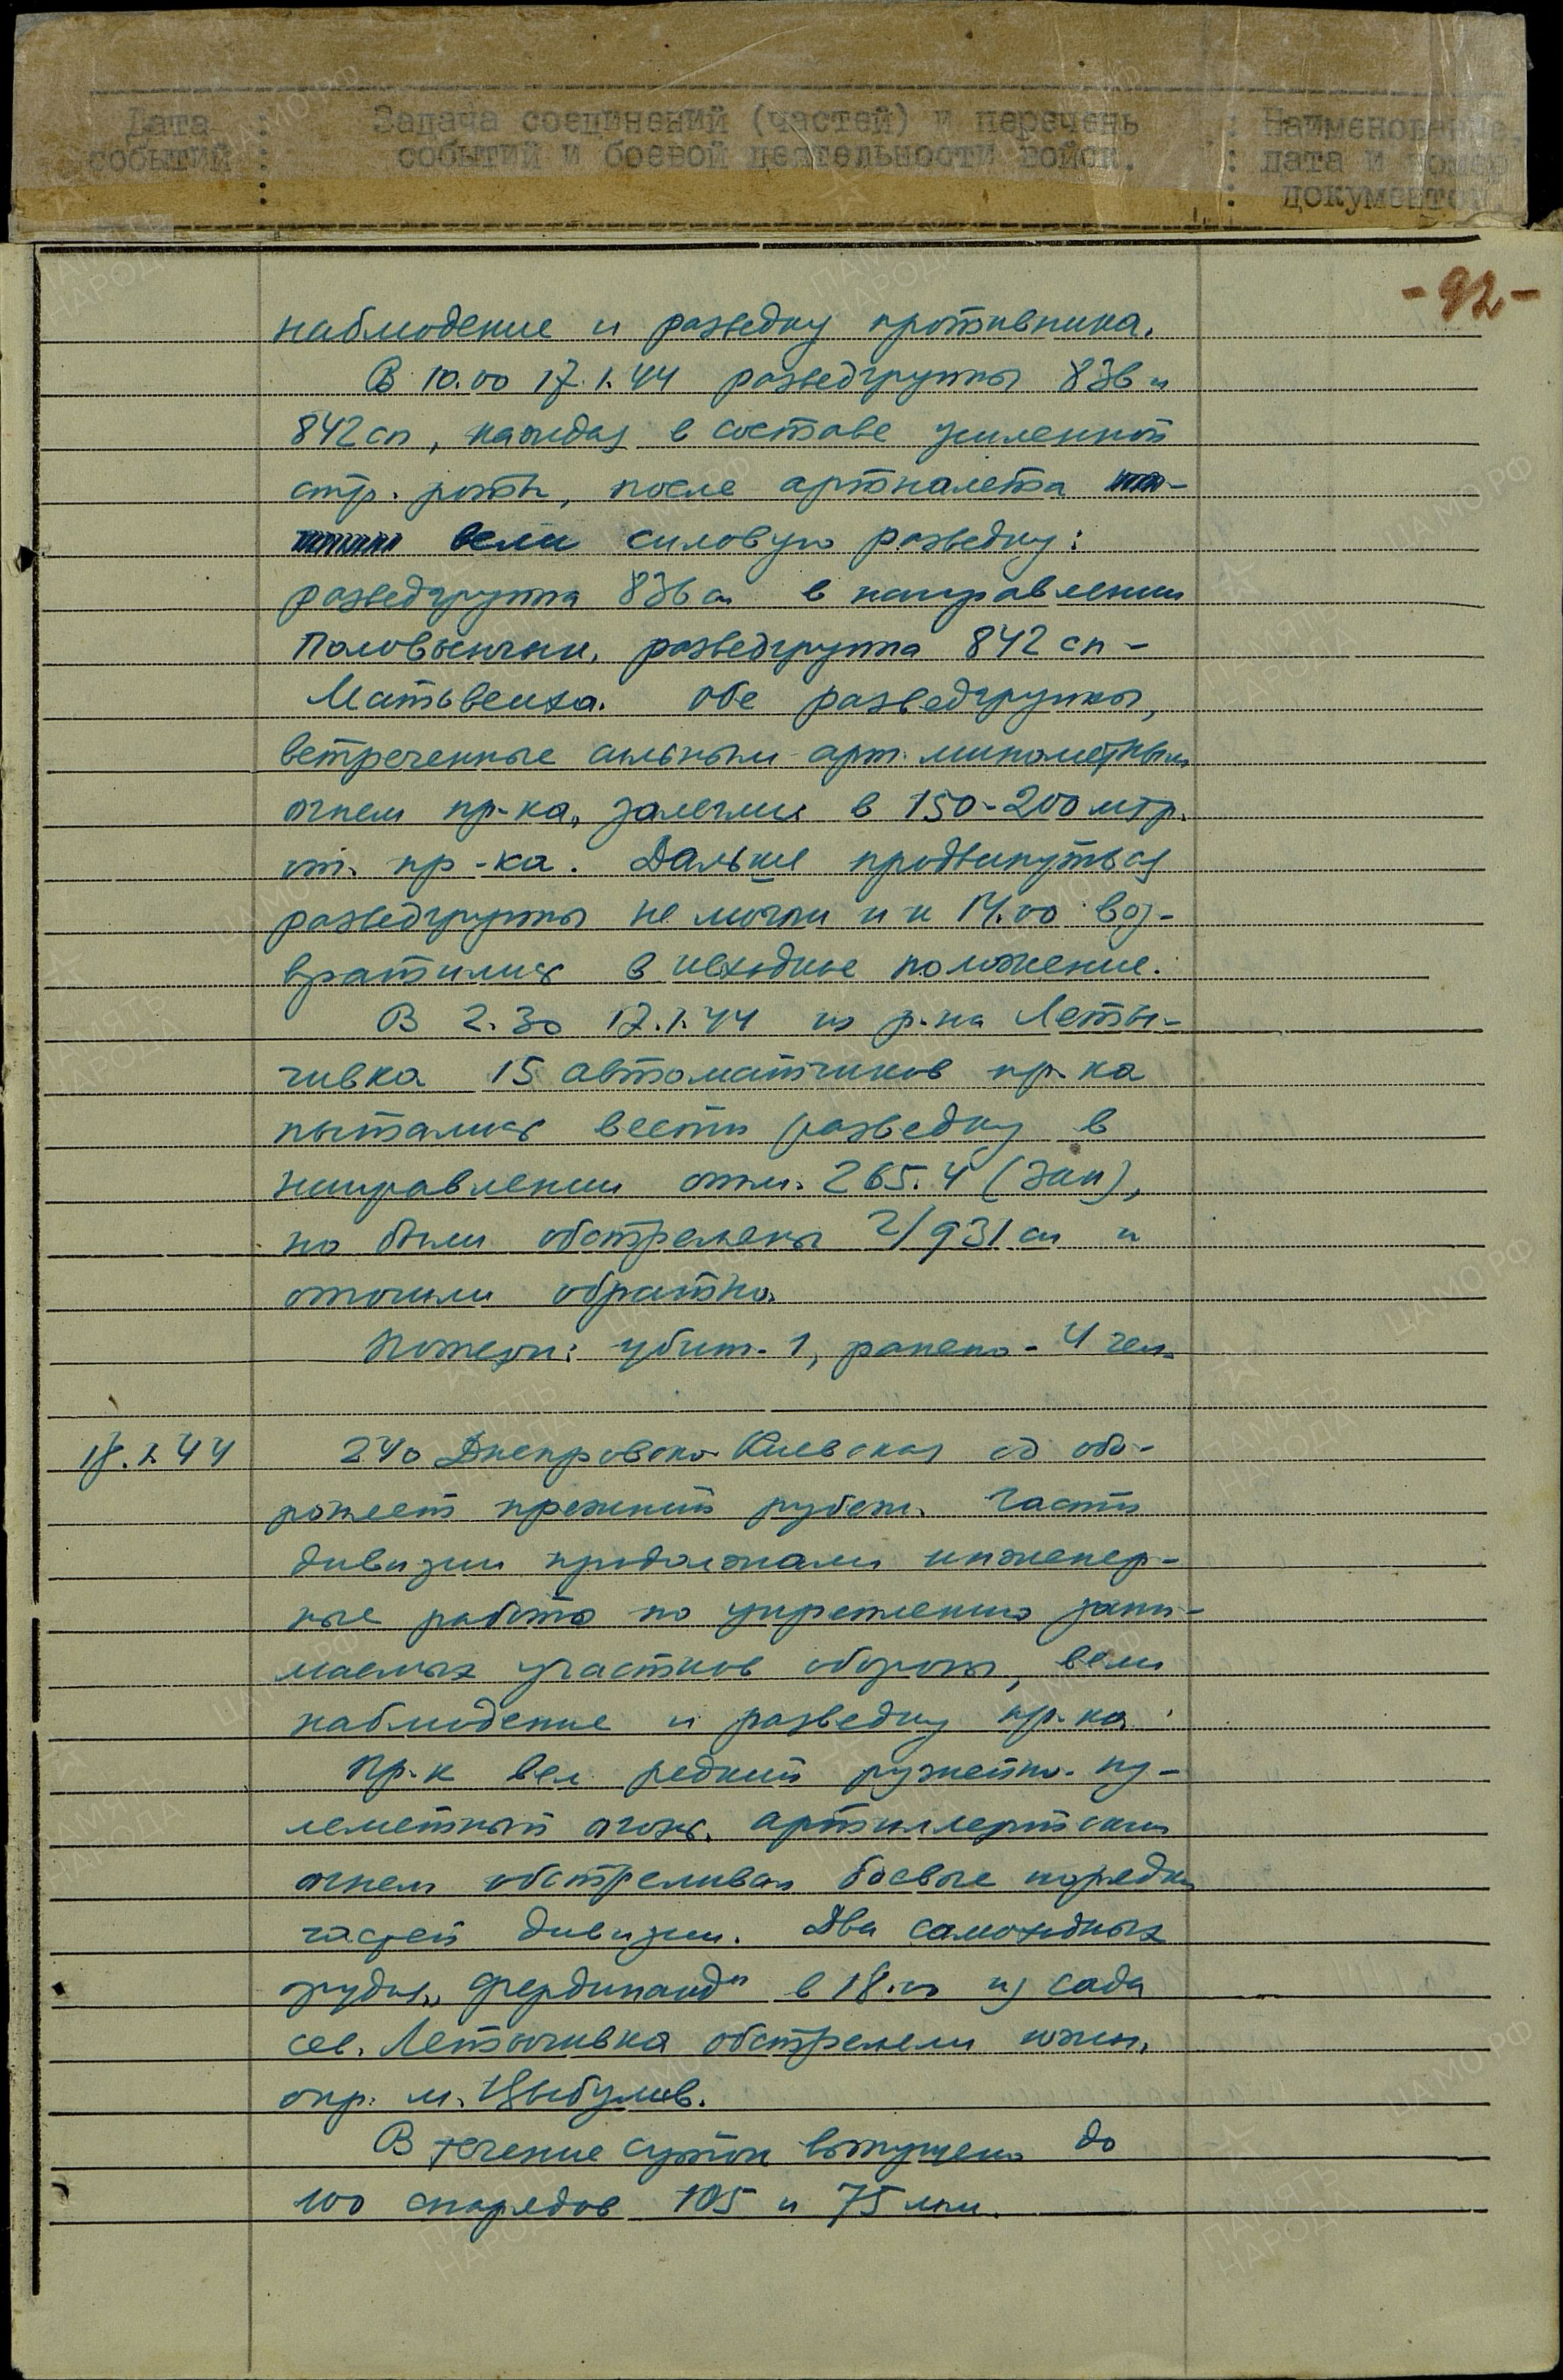 Дата : Задача соединений (частей) и перечень : Наименование,
событий : событий и боевой деятельности войск. : дата и номер
: : документов.
-92-
наблюдение и разведку противника.
В 10.00 17.1.44 разведгруппы 836 и
842 сп, каждая в составе усиленной
стр. роты, после артналета
вели силовую разведку:
разведгруппа 836 сп в направлении
Половынчик, разведгруппа 842 сп -
Матвеиха. Обе разведгруппы,
встреченные сильным арт. минометным
огнем пр-ка, залегли в 150-200 мтр.
от пр-ка. Дальше продвинуться
разведгруппы не могли и к 14.00 воз-
вратились в исходное положение.
В 2.30 17.1.44 из р-на Леты-
чивка 15 автоматчиков пр-ка
пытались вести разведку в
направлении отм. 265.4 (зап),
но были обстреляны 2/931 сп и
отошли обратно.
Потери: убит - 1, ранено - 4 чел.
18.1.44 240 Днепровско-Киевская сд обо-
роняет прежний рубеж. Части
дивизии продолжали инженер-
ные работы по укреплению зани-
маемых участков обороны, вели
наблюдение и разведку пр-ка.
Пр-к вел редкий ружейно-пу-
леметный огонь. Артиллерийским
огнем обстреливал боевые порядки
частей дивизии. Два самоходных
орудия „Фердинанд" в 18.00 из сада
сев. Летычивка обстреляли южн.
окр. м. Цыбулев.
В течение суток выпущено до
100 снарядов 105 и 75 мм.